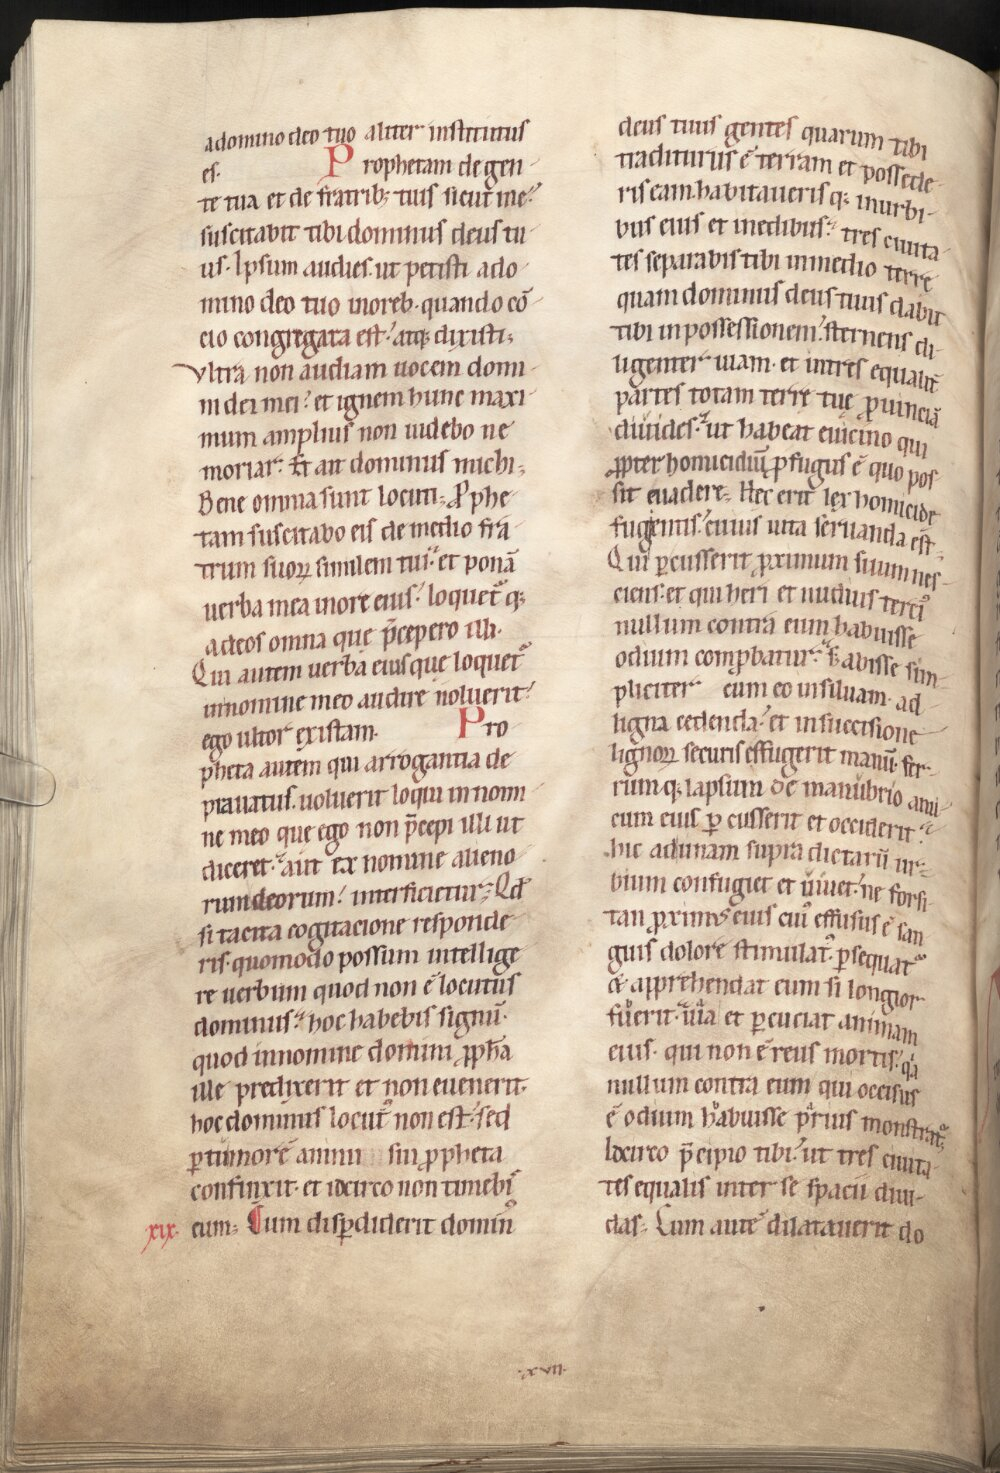 a domino deo tuo aliter institutus
es. Prophetam de gen-
te tua et de fratrib; tuis sicut me
suscitabit tibi dominus deus tu-
us. Ipsum audies. ut petisti a do-
mino deo tuo in oreb. quando cō-
cio congregata est. atq; dixisti;
Vltra non audiam uocem domi-
ni dei mei. et ignem hunc maxi-
mum amplius non uidebo ne
moriar. Et ait dominus michi;
Bene omnia sunt locuti; P̄phe-
tam suscitabo eis de medio fra-
trum suorꝝ similem tui. et ponā
uerba mea in ore eius. loquetᷣ q;
ad eos omnia que p̄cepero illi.
Qui autem uerba eius que loquetᷣ
in nomine meo audire noluerit.
ego ultor existam. Pro-
pheta autem qui arrogantia de-
prauatus. uoluerit loqui in nomi-
ne meo que ego non p̄cepi illi ut
diceret. aut ex nomine alieno-
rum deorum. interficietur; Qđ
si tacita cogitacione responde-
ris. quomodo possum intellige-
re uerbum quod non ē locutus
dominus. hoc habebis signū.
quod in nomine domini ꝓph̄a
ille predixerit et non euenerit.
hoc dominus locutᷣ non est. sed
ꝑ tumorē animi sui ꝓpheta
confinxit. et idcirco non timebis
xix. eum; Cum disꝑdiderit dominꝰ
deus tuus gentes quarum tibi
traditurus ē terram et possede-
ris eam. habitaueris q; in urbi-
bus eius et in edibus. tres ciuita-
tes separabis tibi in medio terrę
quam dominus deus tuus dabit
tibi in possessionem. sternens di-
ligenter uiam. et in tres equalit̄
partes totam terrę tuę ꝓuinciā
diuides. ut habeat e uicino qui
ꝓpter homicidiū ꝓfugus ē quo pos-
sit euadere; Hec erit lex homicide
fugientis. cuius uita seruanda est;
Qui ꝑcusserit ꝓximum suum nes-
ciens. et qui heri et nudius terciꝰ
nullum contra eum habuisse
odium comꝓbatur. & abisse sim-
pliciter cum eo in siluam. ad
ligna cedenda. et in succisione
lignorꝝ securis effugerit manū. fer-
rum q; lapsum de manubrio ami-
cum eius ꝑcusserit et occiderit.
hic ad unam supra dictarū ur-
bium confugiet et uiuet. ne forsi-
tan ꝓximꝰ eius cuiꝰ effusus ē san-
guis dolore stimulatᷣ. ꝑsequatᷣ
& apprehendat eum si longior
fuerit uia et ꝑcuciat animam
eius. qui non ē reus mortis. qa
nullum contra eum qui occisus
ē odium habuisse prius monstratᷣ;
Idcirco p̄cipio tibi. ut tres ciuita-
tes equalis inter se spacii diui-
das; Cum autē dilatauerit do
.xvii.